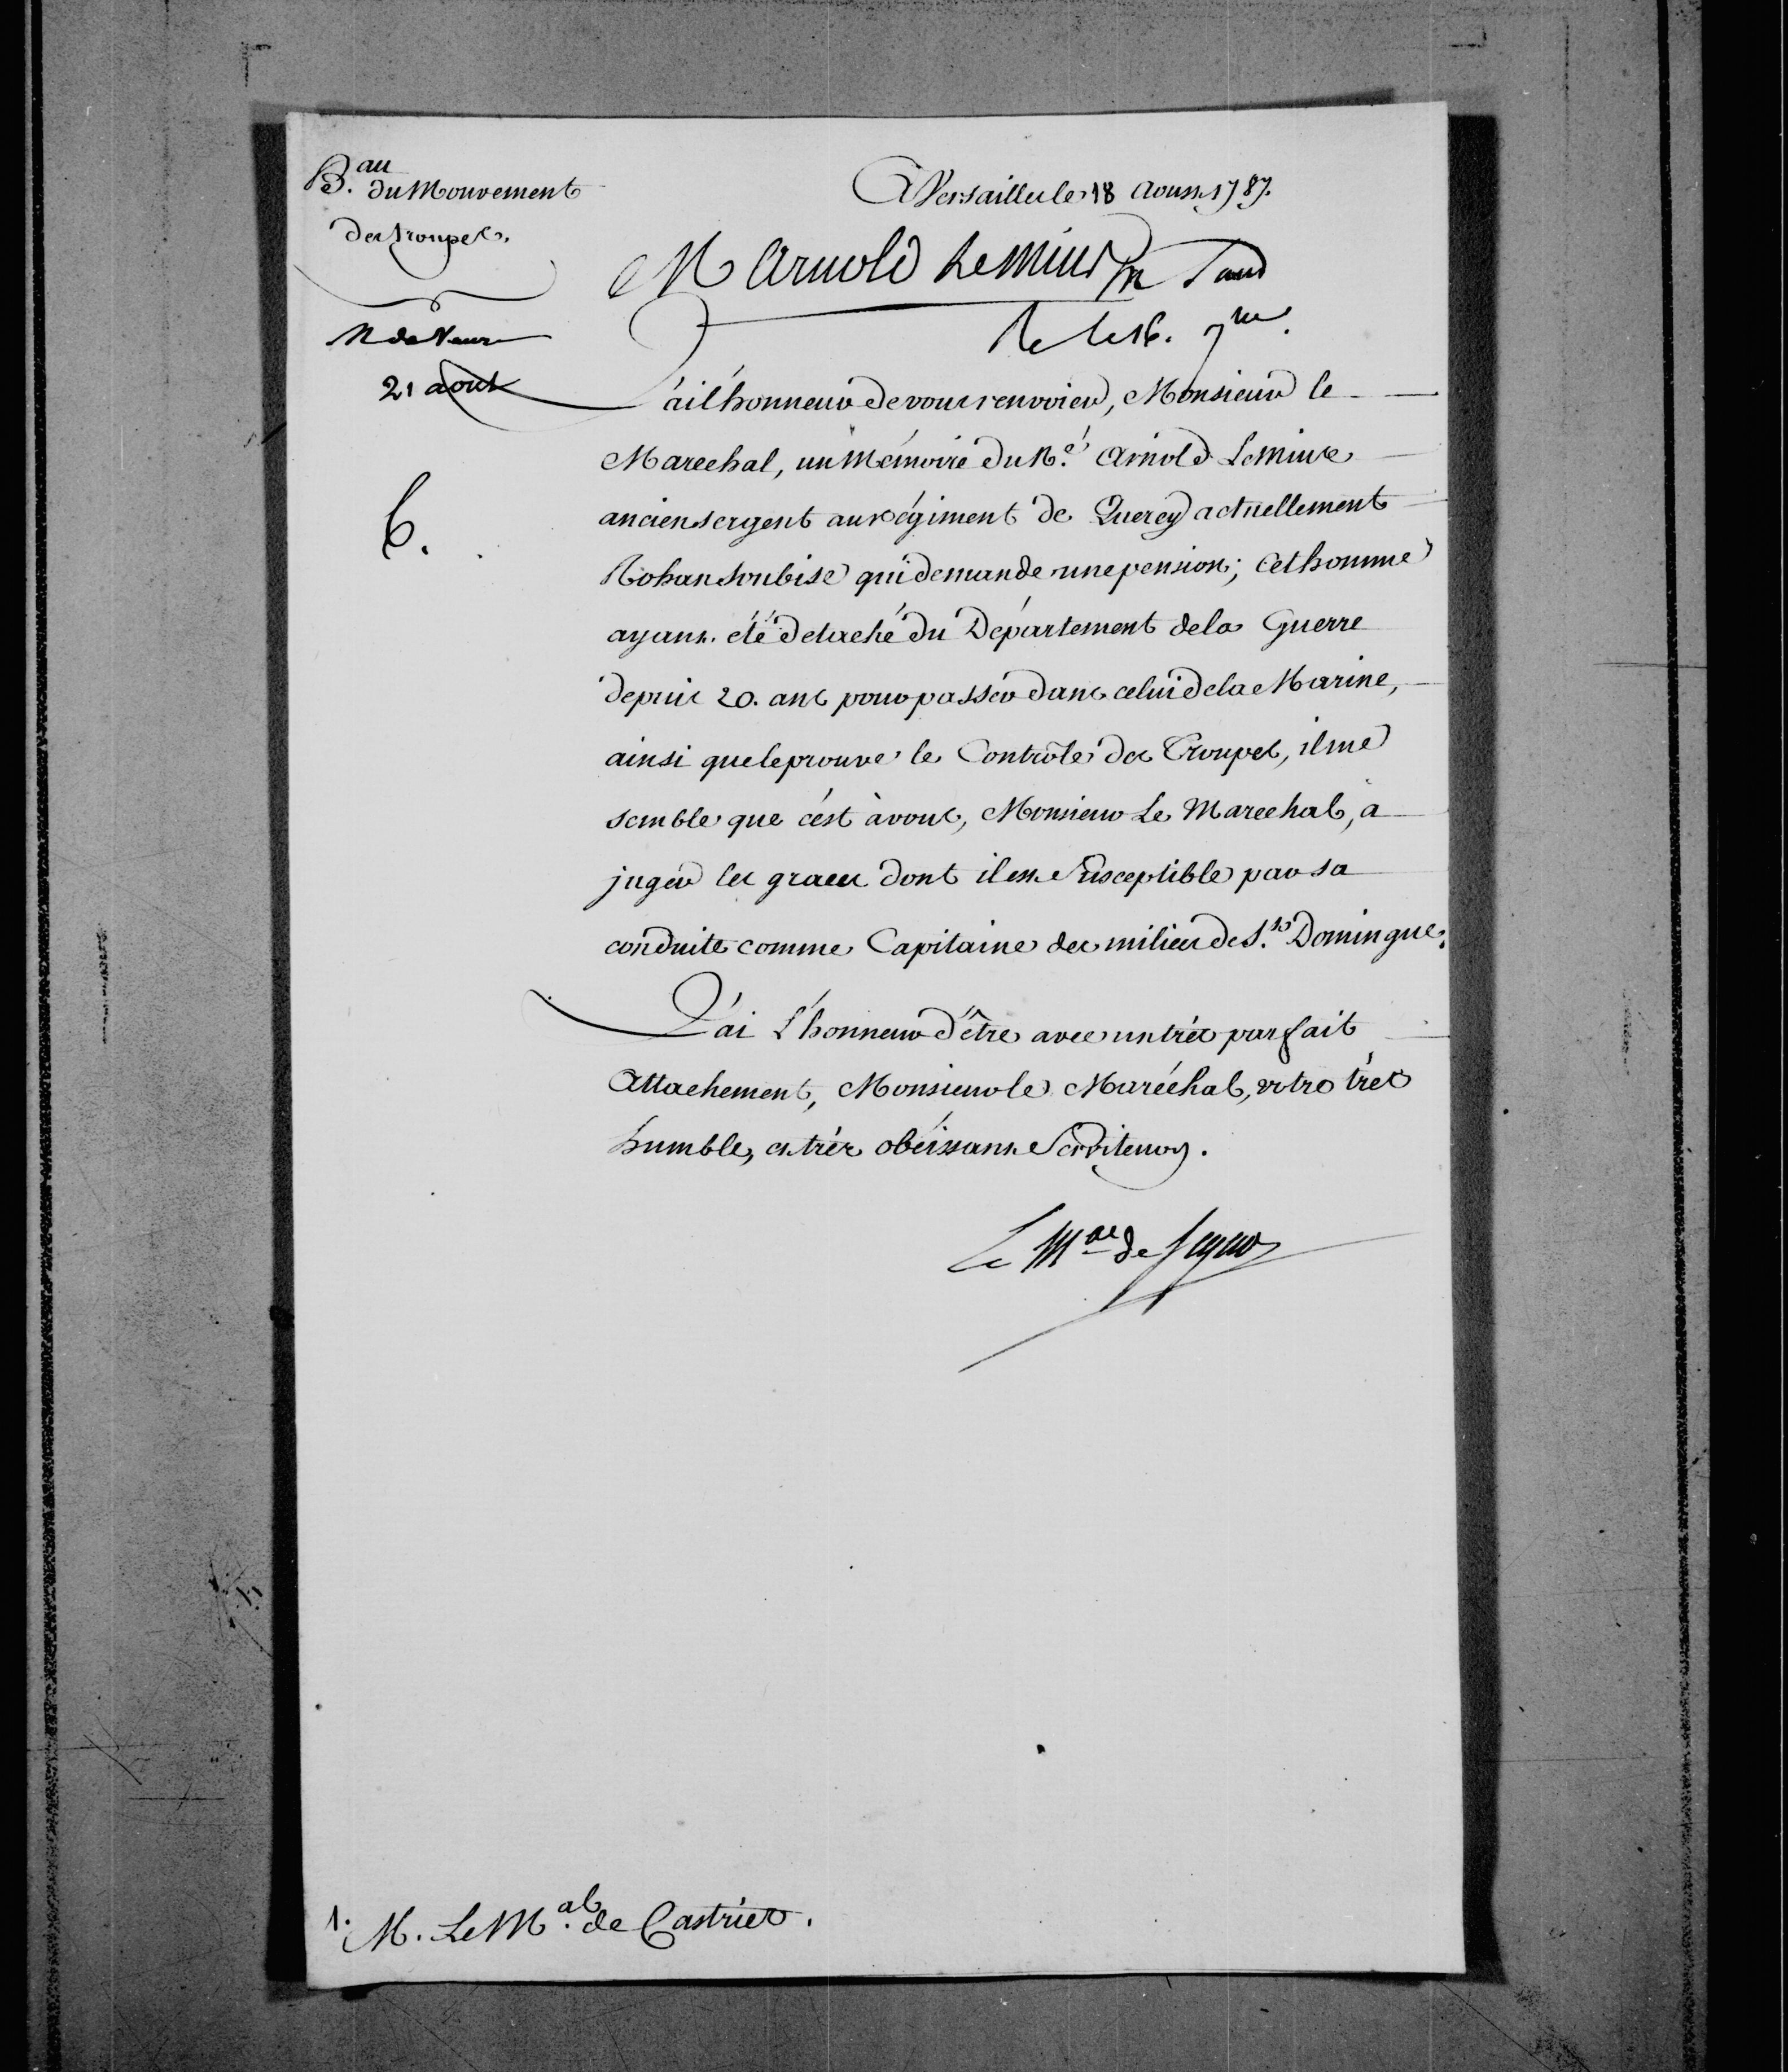 B.au du Mouvement
des troupes.
A Versailles le 18 Aoust 1787.
M Arnold Lemius
21 aout
J'ai l'honneur de vous renvoier, Monsieur le
Marechal, un Mémoire du Né. Arnold Lemius
ancien sergent au régiment de Quercy actuellement
Rohan Soubise qui demande une pension; Cet homme
ayant été détaché du Département de la Guerre
depuis 20. ans pour passer dans celui de la Marine,
ainsi que le prouve le Contrôle des Troupes, il me
semble que c'est à vous, Monsieur Le Marechal, à
juger les graces dont il est Susceptible par sa
conduite comme Capitaine des milices de St. Domingue.
J'ai l'honneur d'être avec un très parfait
Attachement, Monsieur le Maréchal, votre très
humble, et très obéissant Serviteur.
Le Mal de Segur
M. Le M.al de Castries.